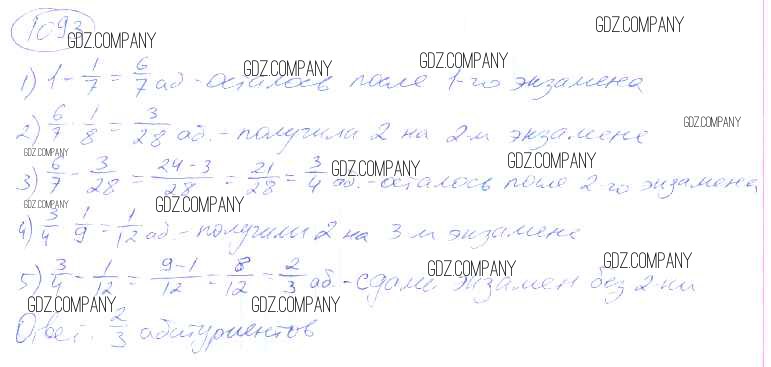 1093
GDZ.COMPANY GDZ.COMPANY
1) 1 - 1/7 = 6/7 аб - осталось после 1-го экзамена
GDZ.COMPANY GDZ.COMPANY
2) 6/7 · 1/8 = 3/28 аб. - получили 2 на 2-м экзамене
GDZ.COMPANY GDZ.COMPANY
3) 6/7 - 3/28 = 24-3/28 = 21/28 = 3/4 аб. - осталось после 2-го экзамена
GDZ.COMPANY GDZ.COMPANY GDZ.COMPANY GDZ.COMPANY
4) 3/4 · 1/9 = 1/12 аб - получили 2 на 3-м экзамене
5) 3/4 - 1/12 = 9-1/12 = 8/12 = 2/3 аб. - сдали экзамен без 2-ки
GDZ.COMPANY GDZ.COMPANY
GDZ.COMPANY GDZ.COMPANY
Ответ: 2/3 абитуриентов